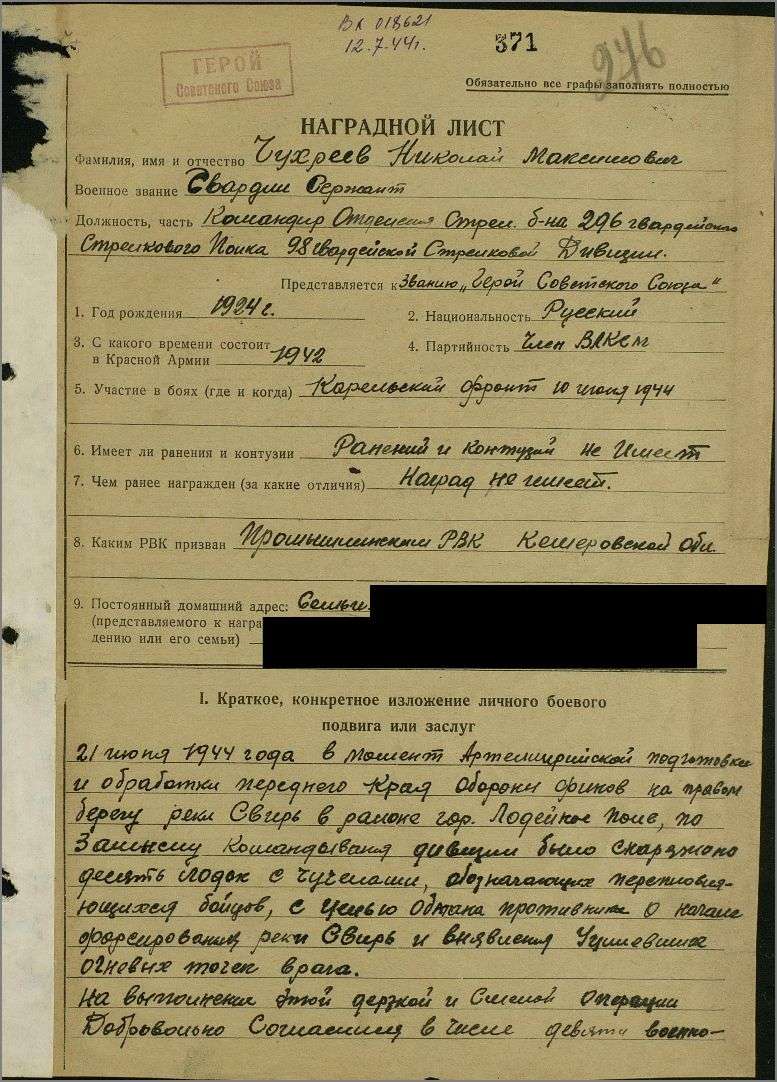 ВК 018621
12.7.44г.
371
276
ГЕРОЙ
Советского Союза
Обязательно все графы заполнять полностью
НАГРАДНОЙ ЛИСТ
Фамилия, имя и отчество Чухреев Николай Максимович
Военное звание Гвардии Сержант
Должность, часть Командир Отделения Стрел. б-на 296 гвардейского
Стрелкового Полка 98 гвардейской Стрелковой Дивизии.
Представляется к Званию „Герой Советского Союза"
1. Год рождения 1924 г.
2. Национальность Русский
3. С какого времени состоит
в Красной Армии 1942
4. Партийность Член ВЛКСМ
5. Участие в боях (где и когда) Карельский фронт 10 июня 1944
6. Имеет ли ранения и контузии Ранений и контузий не Имеет
7. Чем ранее награжден (за какие отличия) Наград не имеет.
8. Каким РВК призван Промышлинским РВК Кемеровской обл.
9. Постоянный домашний адрес:
(представляемого к награ
дению или его семьи)
I. Краткое, конкретное изложение личного боевого
подвига или заслуг
21 июня 1944 года в момент Артиллерийской подготовки
и обработки переднего Края Обороны финов на правом
берегу реки Свирь в районе гор. Лодейное Поле, по
Замыслу Командывания дивизии было снаряжено
десять Лодок с Чучелами, обозначающих переправля-
ющихся бойцов, с целью Обмана противника о начале
форсирования реки Свирь и выявления Уцелевших
огневых точек врага.
На выполнение этой дерзкой и Смелой Операции
Добровольно Согласился в числе девяти военно-